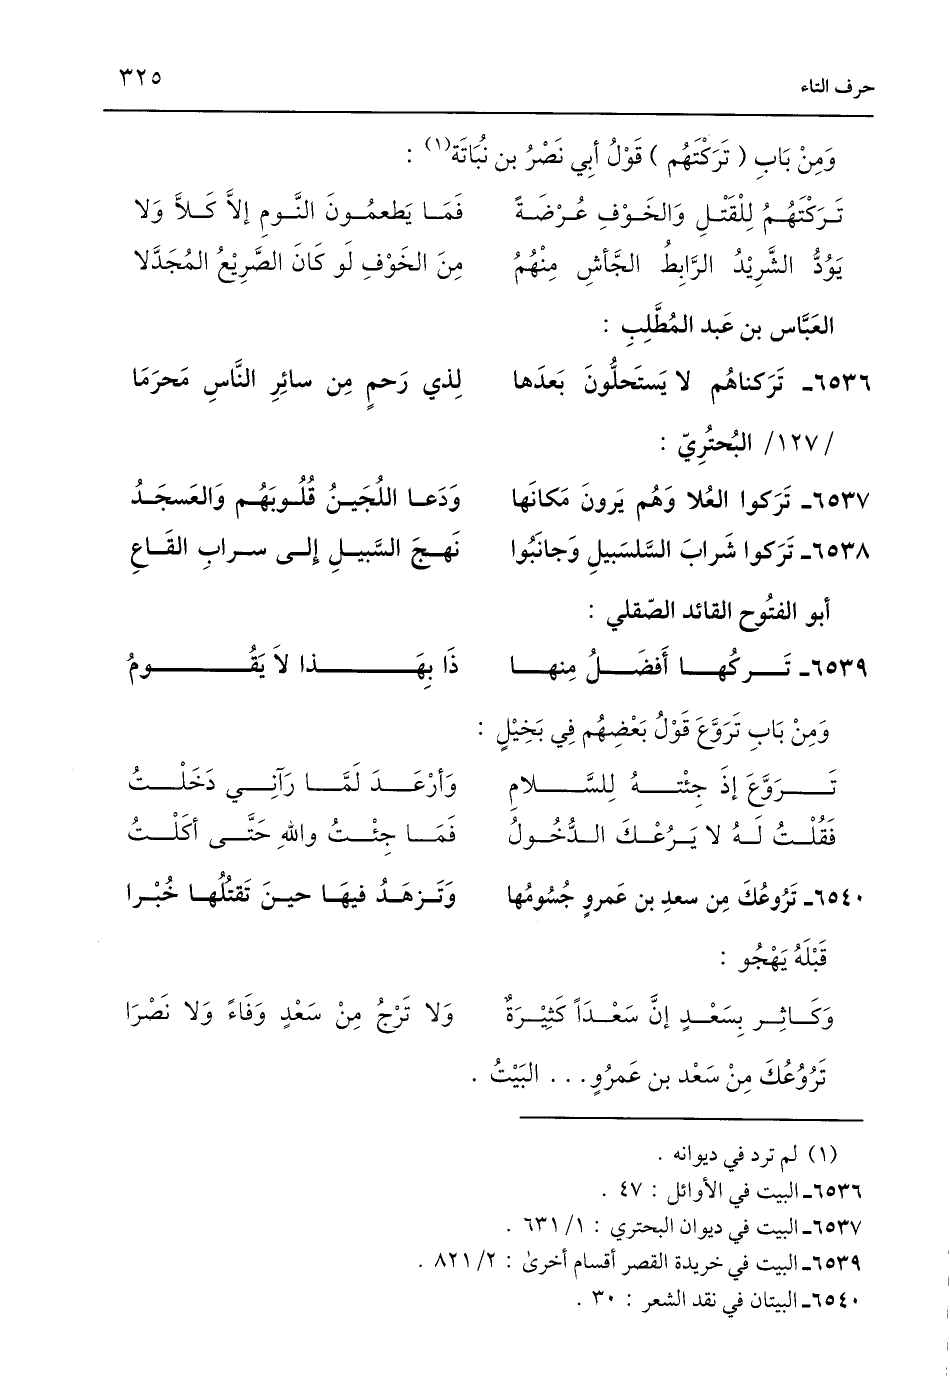 حرف التاء ٣٢٥
وَمِنْ بَابِ ( تَرَكْتَهُم ) قَوْلُ أبي نَصْرُ بن نُبَاتَة(١) :
تَرَكْتَهُمُ لِلْقَتْلِ وَالخَوْفِ عُرْضَةً فَمَا يَطعمُونَ النَّومِ إلاَّ كَلاَّ وَلا
يَوُدُّ الشَّرِيْدُ الرَّابِطُ الجَّأشِ مِنْهُمُ مِنَ الخَوْفِ لَو كَانَ الصَّرِيْعُ المُجَدَّلا
العَبَّاس بن عَبد المُطَّلِبِ :
٦٥٣٦ـ تَرَكناهُم لا يَستَحلُّونَ بَعدَها لِذي رَحمٍ مِن سائرِ النَّاسِ مَحرَمَا
/١٢٧/ البُحتُرِيّ :
٦٥٣٧ـ تَرَكوا العُلا وَهُم يَرونَ مَكانَها وَدَعا اللُجَينُ قُلُوبَهُم وَالعَسجَدُ
٦٥٣٨ـ تَرَكوا شَرابَ السَّلسَبيلِ وَجانَبُوا نَهجَ السَّبيلِ إلى سرابِ القَاعِ
أبو الفتُوح القائد الصّقلي :
٦٥٣٩ـ تَركُها أَفضَلُ مِنها ذَا بِهَذا لاَ يَقُومُ
وَمِنْ بَابِ تَرَوَّعَ قَوْلُ بَعْضِهُم فِي بَخِيْلٍ :
تَرَوَّعَ إذَ جِئْتهُ لِلسَّلامِ وَأرْعَدَ لَمَّا رَآنِي دَخَلْتُ
فَقُلْتُ لَهُ لا يَرُعْكَ الدُّخُولُ فَمَا جِئْتُ واللهِ حَتَّى أكَلْتُ
٦٥٤٠ـ تَرُوعُكَ مِن سعدِ بن عَمروٍ جُسُومُها وَتَزهَدُ فيهَا حينَ تَقتُلُها خُبْرا
قَبْلَهُ يَهْجُو :
وَكَاثِر بِسَعْدٍ إنَّ سَعْدَاً كَثِيْرَةٌ وَلا تَرْجُ مِنْ سَعْدٍ وَفَاءً وَلا نَصْرَا
تَرُوْعُكَ مِنْ سَعْد بن عَمرُوٍ . . . البَيْتُ .
(١) لم ترد في ديوانه .
٦٥٣٦ـ البيت في الأوائل : ٤٧ .
٦٥٣٧ـ البيت في ديوان البحتري : ١/ ٦٣١ .
٦٥٣٩ـ البيت في خريدة القصر أقسام أخرىٰ : ٢/ ٨٢١ .
٦٥٤٠ـ البيتان في نقد الشعر : ٣٠ .